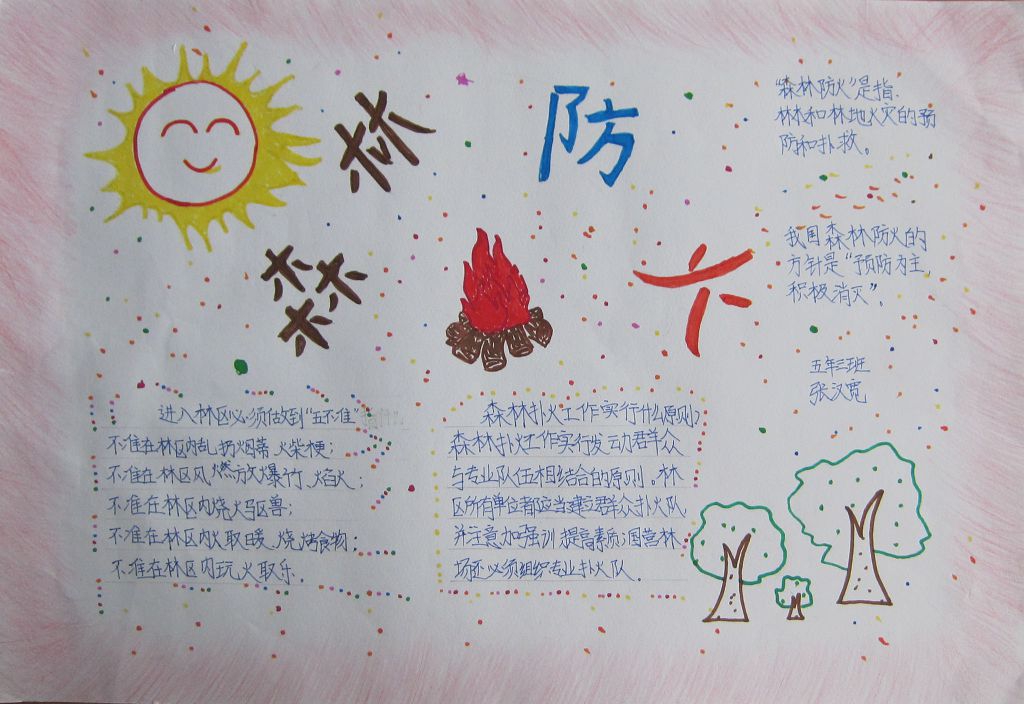 森林防火
"森林防火"是指.
林林和林地火灾的预
防和扑救。
我国森林防火的
方针是"预防为主
积极消灭".
五年三班
张汉宽
进入林区必须做到"五不准"
不准在林区内乱扔烟蒂、火柴梗；
不准在林区风燃放爆竹、焰火；
不准在林区内烧火驱兽；
不准在林区内火取暖、烧烤食物；
不准在林区内玩火取乐.
森林扑火工作实行什么原则？
森林扑火工作实行发动群众
与专业队伍相结合的原则。林
区所有单位都应当建立群众扑火队
并注意加强训提高素质；国营林
场还必须组织专业扑火队.